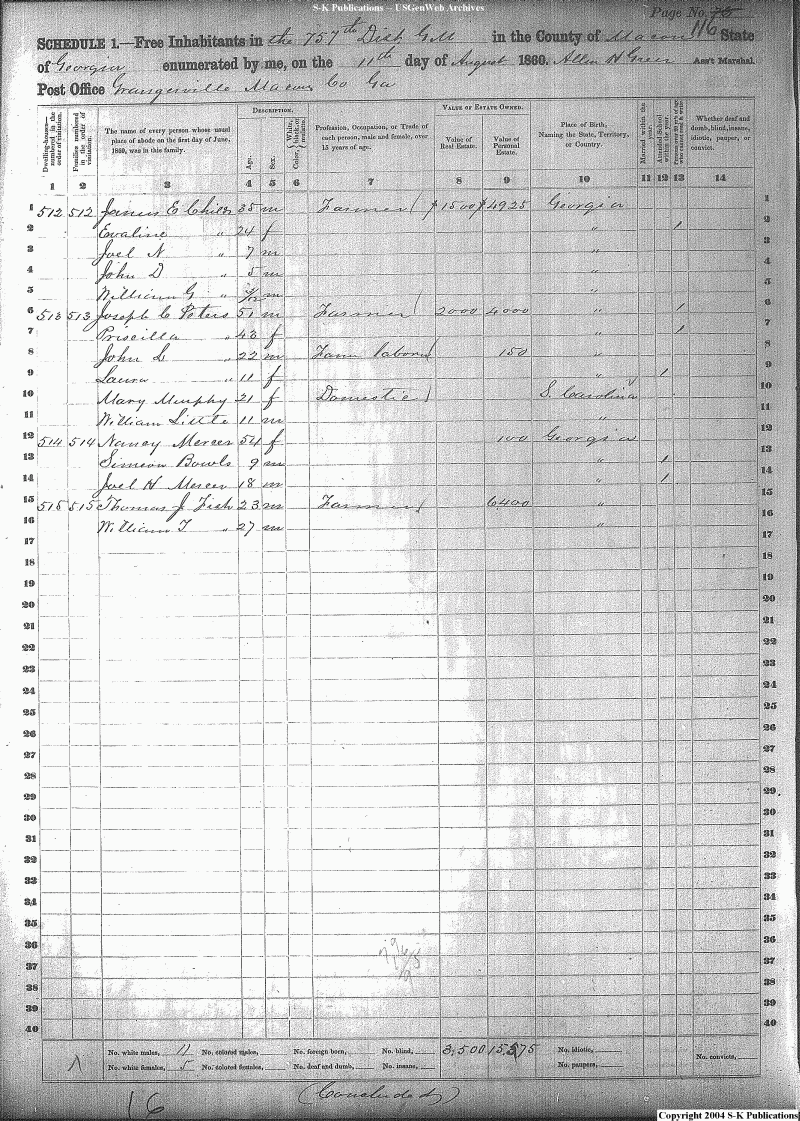 S-K Publications -- USGenWeb Archives
Page No. 75
116
SCHEDULE 1.—Free Inhabitants in the 757th Dist G.M in the County of Macon State
of Georgia enumerated by me, on the 11th day of August 1860. Allen H Green Ass't Marshal.
Post Office Grangerville Macon Co Ga
Dwelling-houses—numbered in the order of visitation.
Families numbered in the order of visitation.
The name of every person whose usual place of abode on the first day of June, 1860, was in this family.
DESCRIPTION.
Age.
Sex.
Color, White, black, or mulatto.
Profession, Occupation, or Trade of each person, male and female, over 15 years of age.
VALUE OF ESTATE OWNED.
Value of Real Estate.
Value of Personal Estate.
Place of Birth, Naming the State, Territory, or Country.
Married within the year.
Attended School within the year.
Whether deaf and dumb, blind, insane, idiotic, pauper, or convict.
1 2 3 4 5 6 7 8 9 10 11 12 13 14
1 512 512 James E Childs 35 m Farmer $1500 $4925 Georgia 1
2 Evaline " 24 f " / 2
3 Joel N " 7 m " 3
4 John D " 5 m " 4
5 William G " m " 5
6 513 513 Joseph C Peters 51 m Farmer 2000 4000 " / 6
7 Priscilla " 43 f " / 7
8 John L " 22 m Farm laborer 150 " 8
9 Laura " 11 f " / 9
10 Mary Murphy 21 f Domestic S. Carolina 10
11 William Little 11 m " 11
12 514 514 Nancy Mercer 54 f 100 Georgia 12
13 Simeon Bowls 9 m " / 13
14 Joel H Mercer 18 m " / 14
15 515 515 Thomas J Fish 23 m Farmer 6400 " 15
16 William T " 27 m " 16
17 17
18 18
19 19
20 20
21 21
22 22
23 23
24 24
25 25
26 26
27 27
28 28
29 29
30 30
31 31
32 32
33 33
34 34
35 35
36 36
37 37
38 38
39 39
40 40
No. white males, 11 No. colored males, No. foreign born, No. blind, 3,500 15,575 No. idiotic,
No. white females, 5 No. colored females, No. deaf and dumb, No. insane, No. paupers, No. convicts,
16 (Concluded)
Copyright 2004 S-K Publications